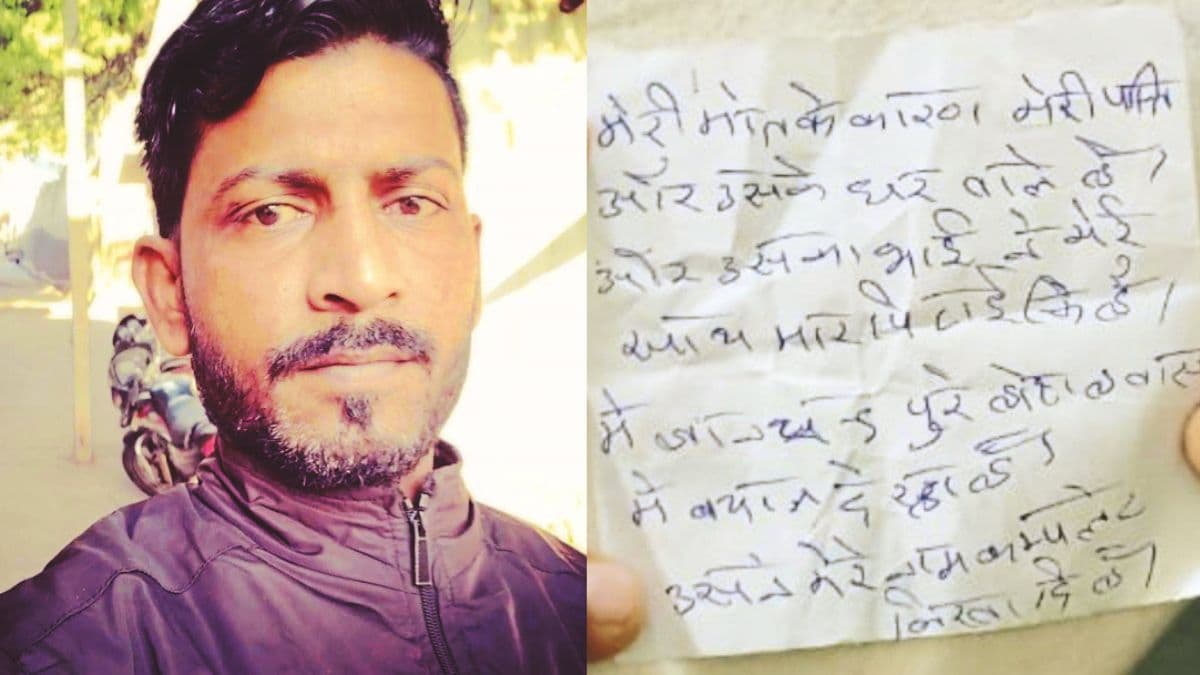 मेरी मोत के कारण मेरी पत्नि
और उसके घर वाले हैं।
और उसका भाई ने मेरे
साथ मारपिटाई कि है।
मे पुरे होस हवास
मे बयान दे रहा हुँ।
उसने मेरे नाम कम्पलेट
लिखा दि है।